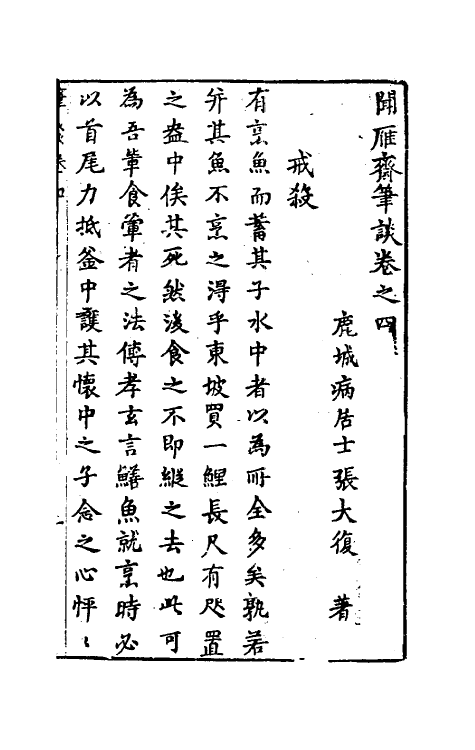 聞雁齋筆談卷之四
鹿城病居士張大復　著
戒殺
有烹魚而蓄其子水中者以為所全多矣孰若
并其魚不烹之淂乎東坡買一鯉長尺有咫置
之盎中俟其死然後食之不即縱之去也此可
為吾輩食葷者之法傅孝玄言鱔魚就烹時必
以首尾力抵釜中護其懷中之子念之心怦〻
筆談卷四
一